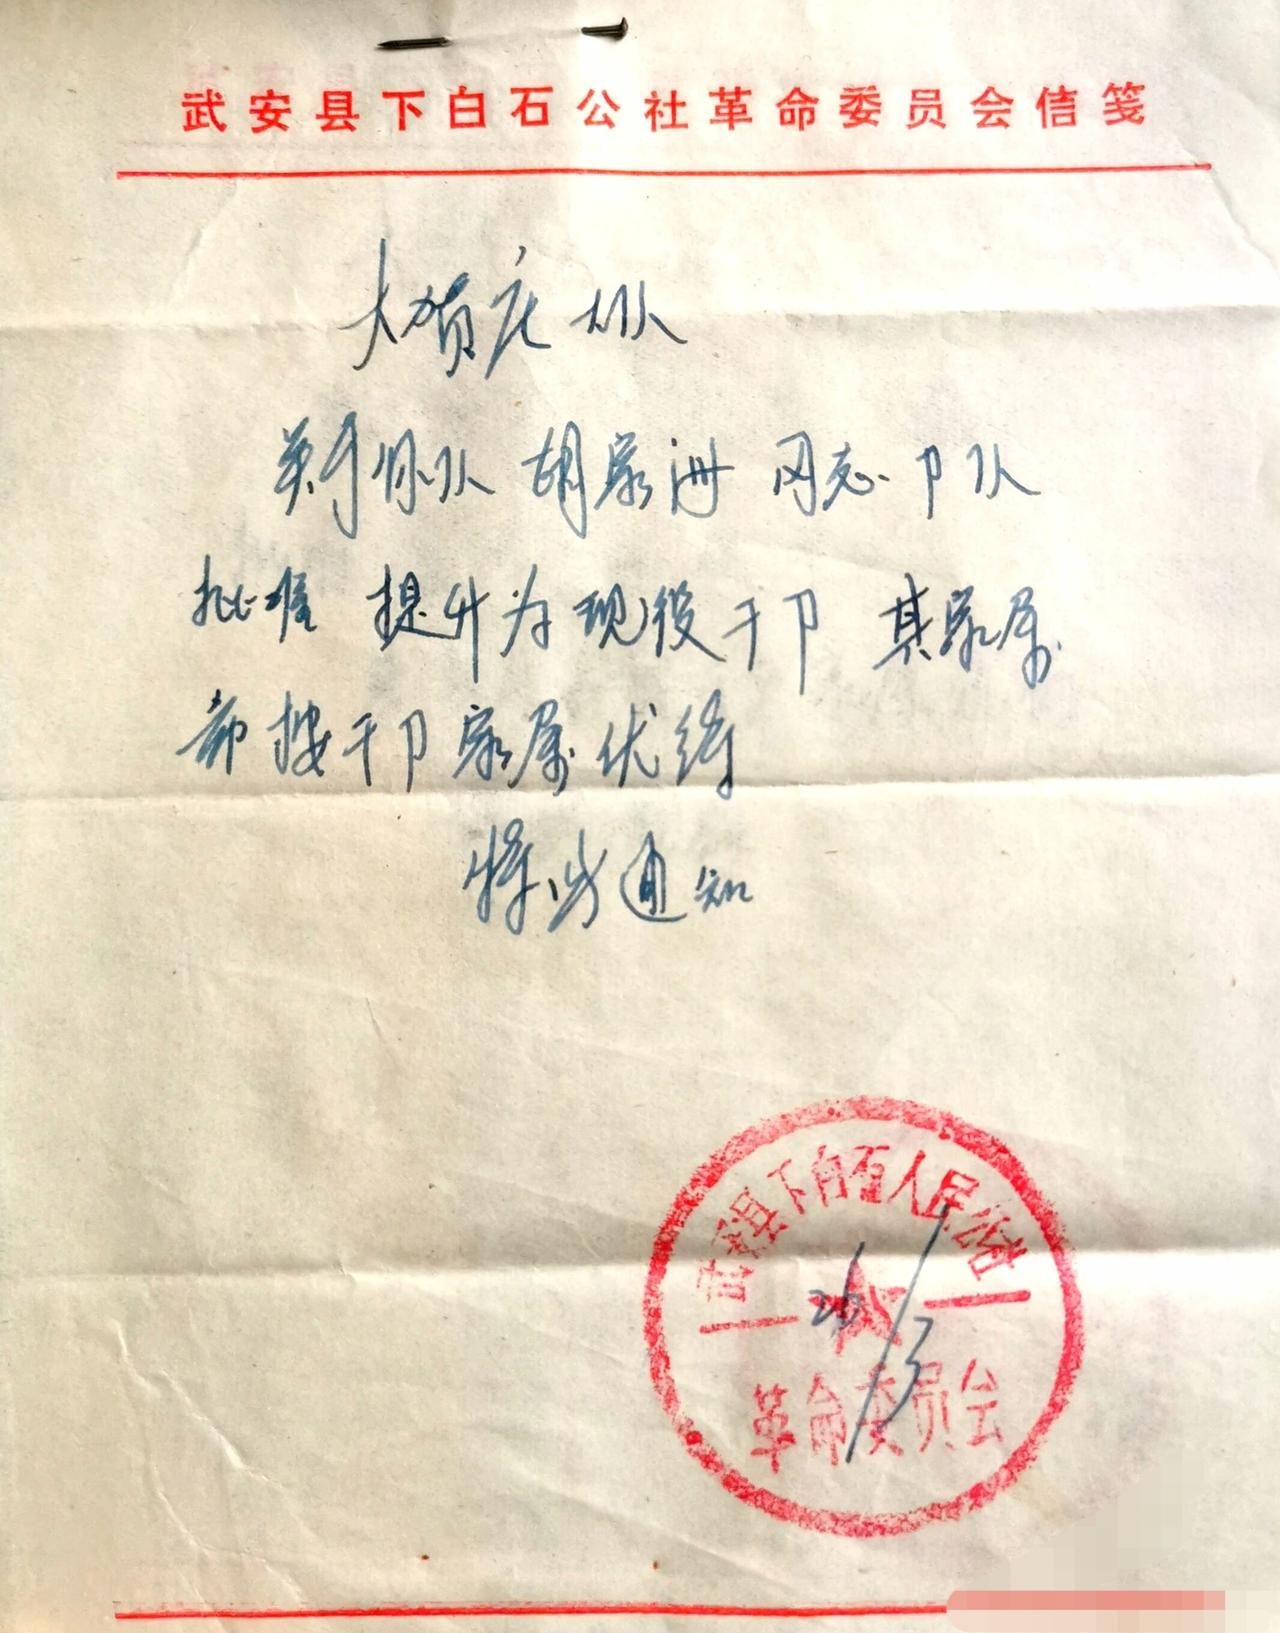 武安县下白石公社革命委员会信笺
大贺庄大队
关于你队胡家海同志卩队
批准提升为现役干卩其家属
都按干卩家属优待
特此通知
武安县下白石人民公社
26/3
革命委员会